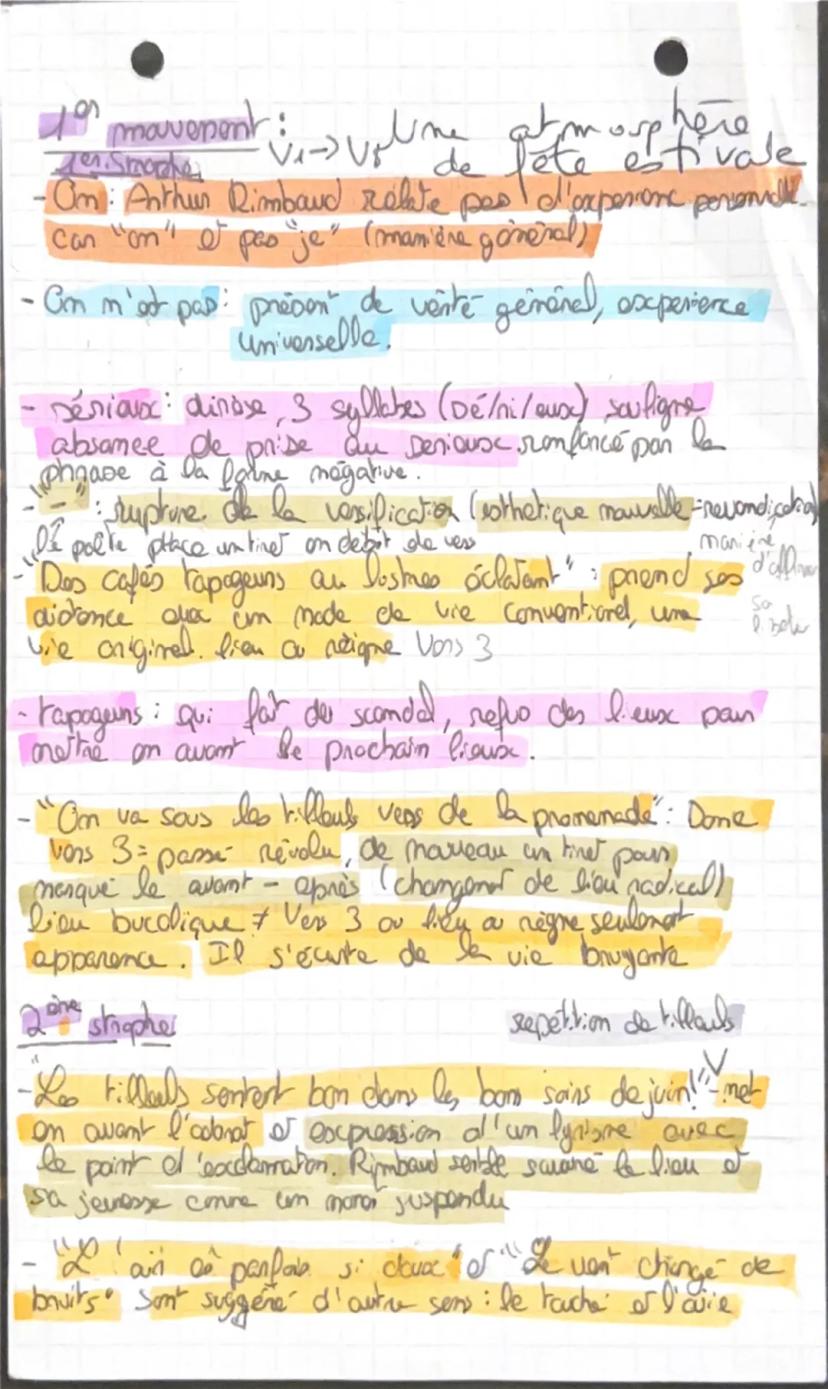 1er mouvement : V1 → V8 Une atmosphère
1er. Strophe de fête estivale
- On : Arthur Rimbaud relate pas d'experienc personnelle
car "on" et pas "je" (manière général)
- On n'est pas : présent de vérité général, experience
universelle.
- sérieux : dièrèse, 3 syllabes (Sé/ri/eux) souligne
absence de prise au serieux renforcé par la
phrase à la forme négative.
- "-" : rupture de la versification (esthétique nouvelle = revendication)
le poète place un tiret en debut de vers
manière
d'affirmer
sa
liberté
- "Des cafés tapageurs au lustres éclatant" : prend ses
distance avec un mode de vie conventionel, une
vie originel. lieu ou règne Vers 3
- tapageurs : qui fait des scandal, refus des lieux pour
mettre en avant le prochain lieux.
- "On va sous les tilleuls verts de la promenade" : Donc
vers 3 = passé révolu, de nouveau un tiret pour
marqué le avant - après (changement de lieu radical)
lieu bucolique ≠ Vers 3 ou lieu ou règne seulement
apparence. Il s'écarte de la vie bruyante
2ème strophe repetition de tilleuls
- "Les tilleuls sentent bon dans les bons soirs de juin!" - met
en avant l'odorat et expression d'un lyrisme avec
le point d'exclamation. Rimbaud semble savouré le lieu et
sa jeunesse comme un moment suspendu
- "L'air est parfois si doux" et "Le vent chargé de
bruits" sont suggéré d'autre sens : le touché et l'ouie